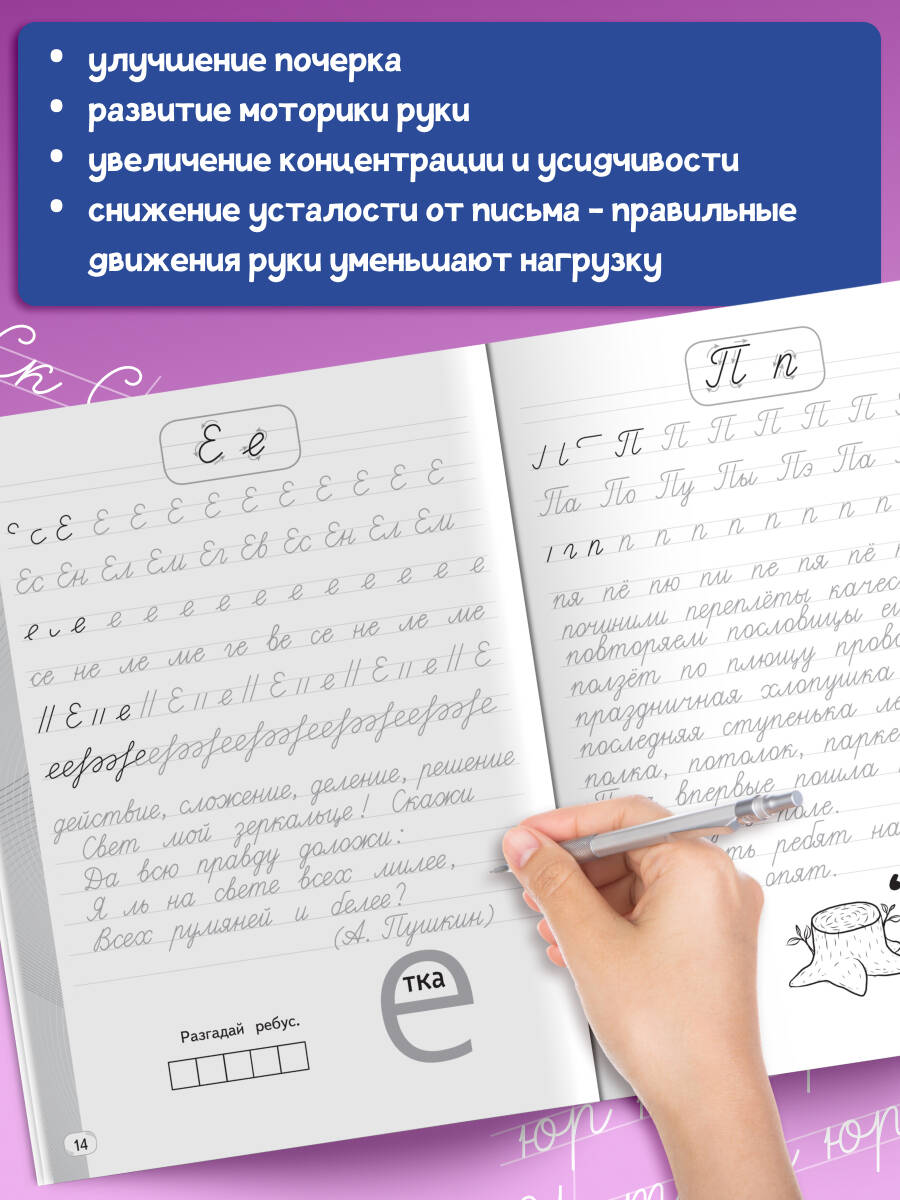 улучшение почерка
развитие моторики руки
увеличение концентрации и усидчивости
снижение усталости от письма – правильные
движения руки уменьшают нагрузку
Е е
Е Е Е Е Е Е Е Е Е Е Е
Ес Ен Ел Ем Ег Ев Ес Ен Ел Ем
е е е е е е е е е е е е е
се не ле ме ге ве се не ле ме
// Е // е // Е // е // Е // е // Е // е // Е
действие, сложение, деление, решение
Свет мой зеркальце! Скажи
Да всю правду доложи:
Я ль на свете всех милее,
Всех румяней и белее?
(А. Пушкин)
Разгадай ребус.
е
тка
14
П п
П П П П П П
Па По Пу Пы Пэ Па
п п п п п п п п п
пя пё пю пи пе пя пё
починили переплёты
повторяем пословицы
ползёт по плющу
праздничная хлопушка
последняя ступенька
полка, потолок,
впервые пошла
поле.
ребят на
опят.
юр
юр